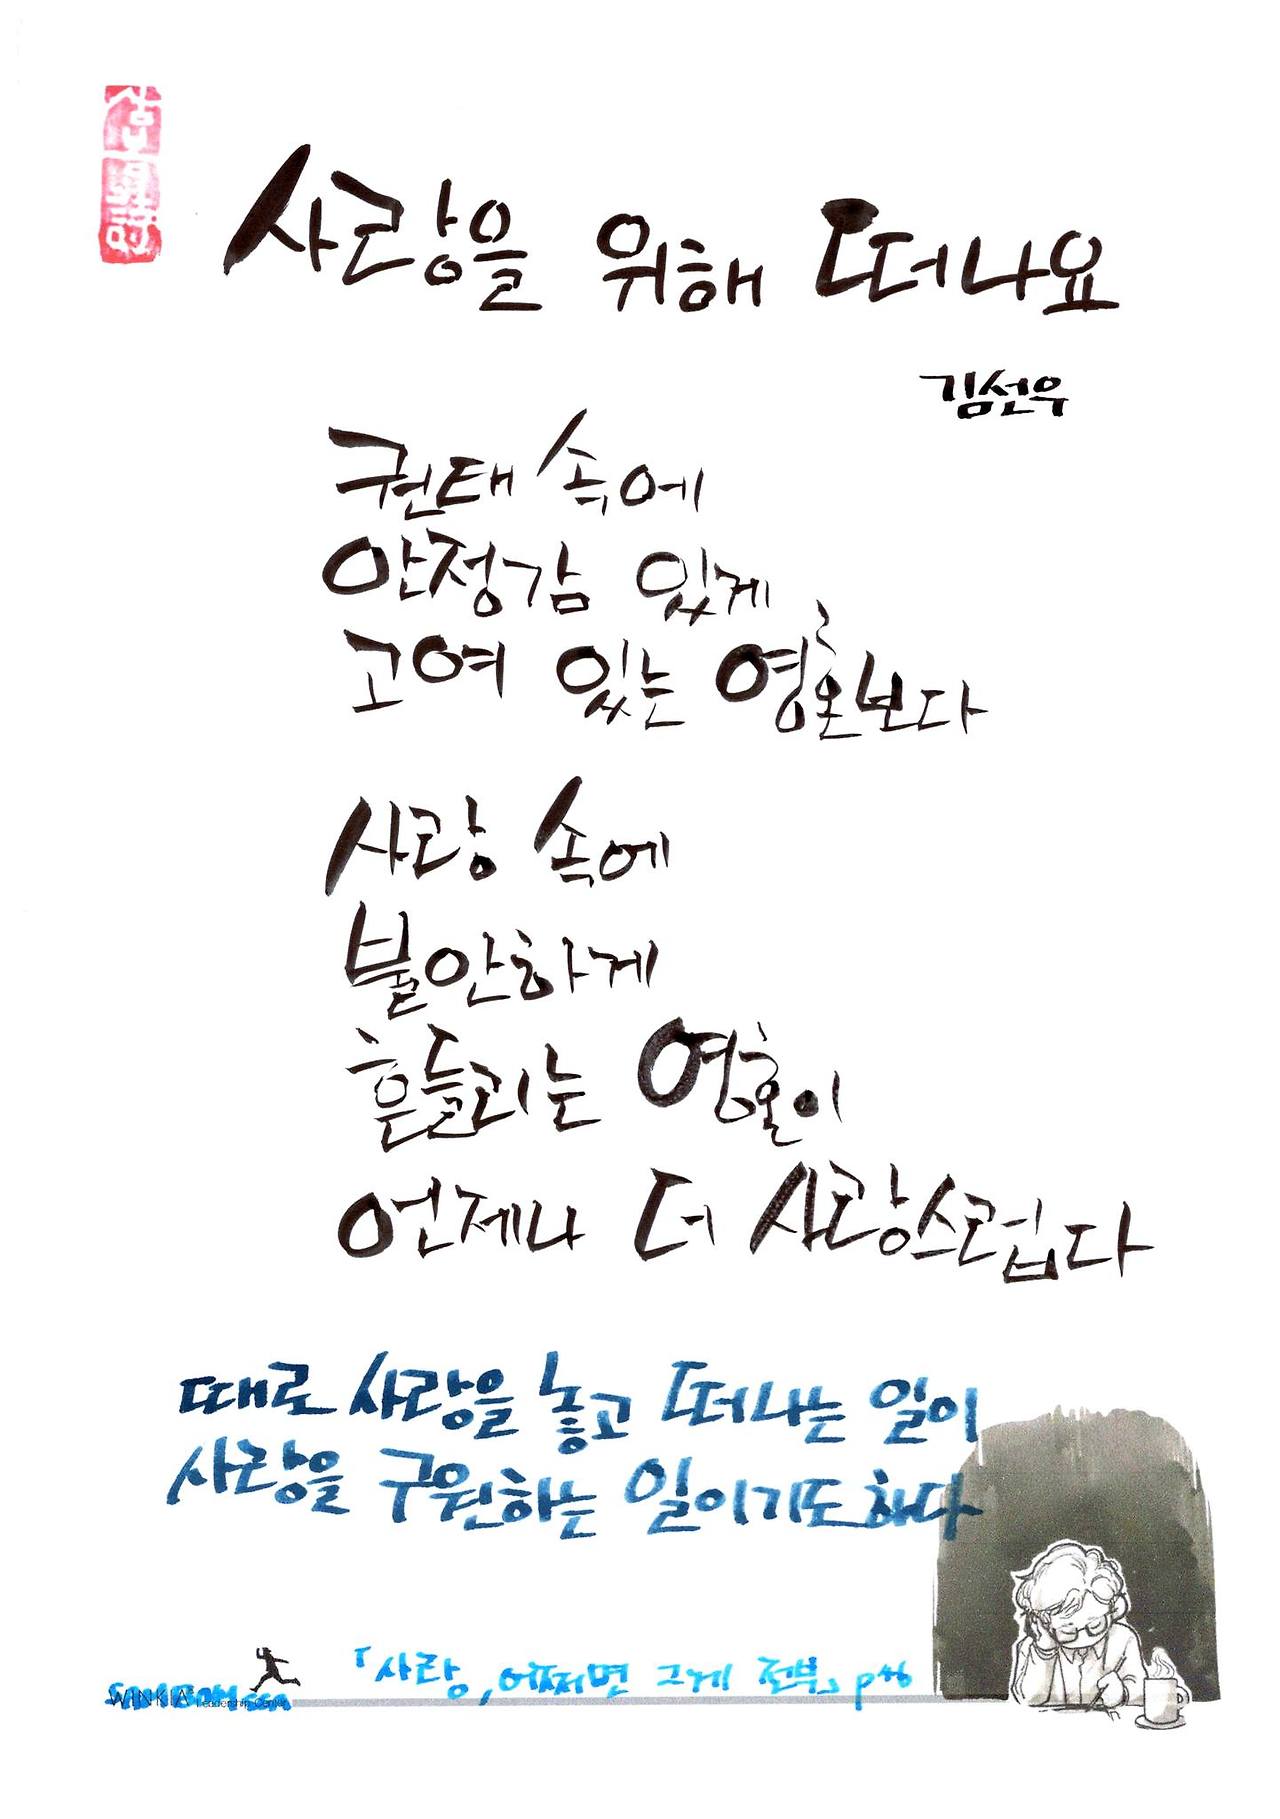 사랑을 위해 떠나요
김선우
권태 속에
안정감 있게
고여 있는 영혼보다
사랑 속에
불안하게
흔들리는 영혼이
언제나 더 사랑스럽다
때로 사랑을 놓고 떠나는 일이
사랑을 구원하는 일이기도 하다
「사랑, 어쩌면 그게 전부」 p46
WINKIA Leadership Center